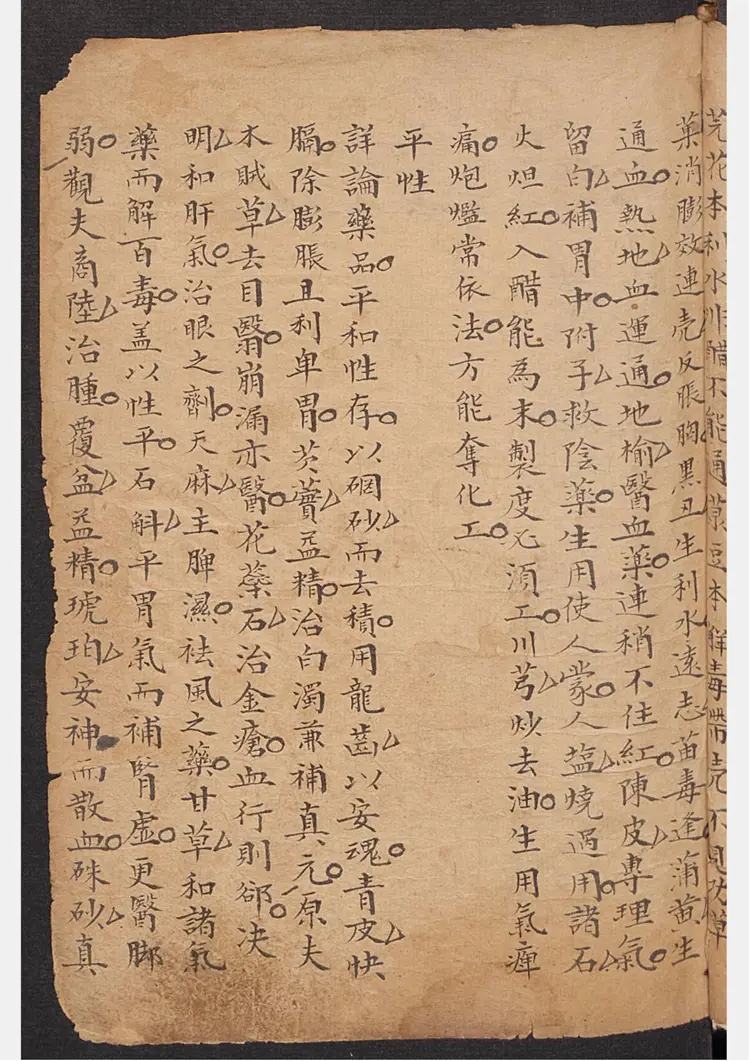 芫花本利水非醋不能通菉豆本解毒帶壳不見功草
菓消膨效連壳反脹胸黑丑生利水遠志苗毒逢蒲黄生
通血熟地血運通地榆醫血藥連稍不住紅陳皮專理氣
留白補胃中附子救陰藥生用使人蒙人塩燒過用諸石
火炟紅入醋能為末製度必須工川芎炒去油生用氣痺
痛炮爁常依法方能奪化工
平性
詳論藥品平和性存以硇砂而去積用龍齒以安魂青皮快
膈除膨脹且利卑胃芡薲益精治白濁兼補真元原夫
木賊草去目翳崩漏亦醫花蘂石治金瘡血行則郤决
明和肝氣治眼之劑天麻主脾濕袪風之藥甘草和諸氣
藥而解百毒盖以性平石斛平胃氣而補腎虚更醫脚
弱觀夫商陸治腫覆盆益精琥珀安神而散血硃砂真